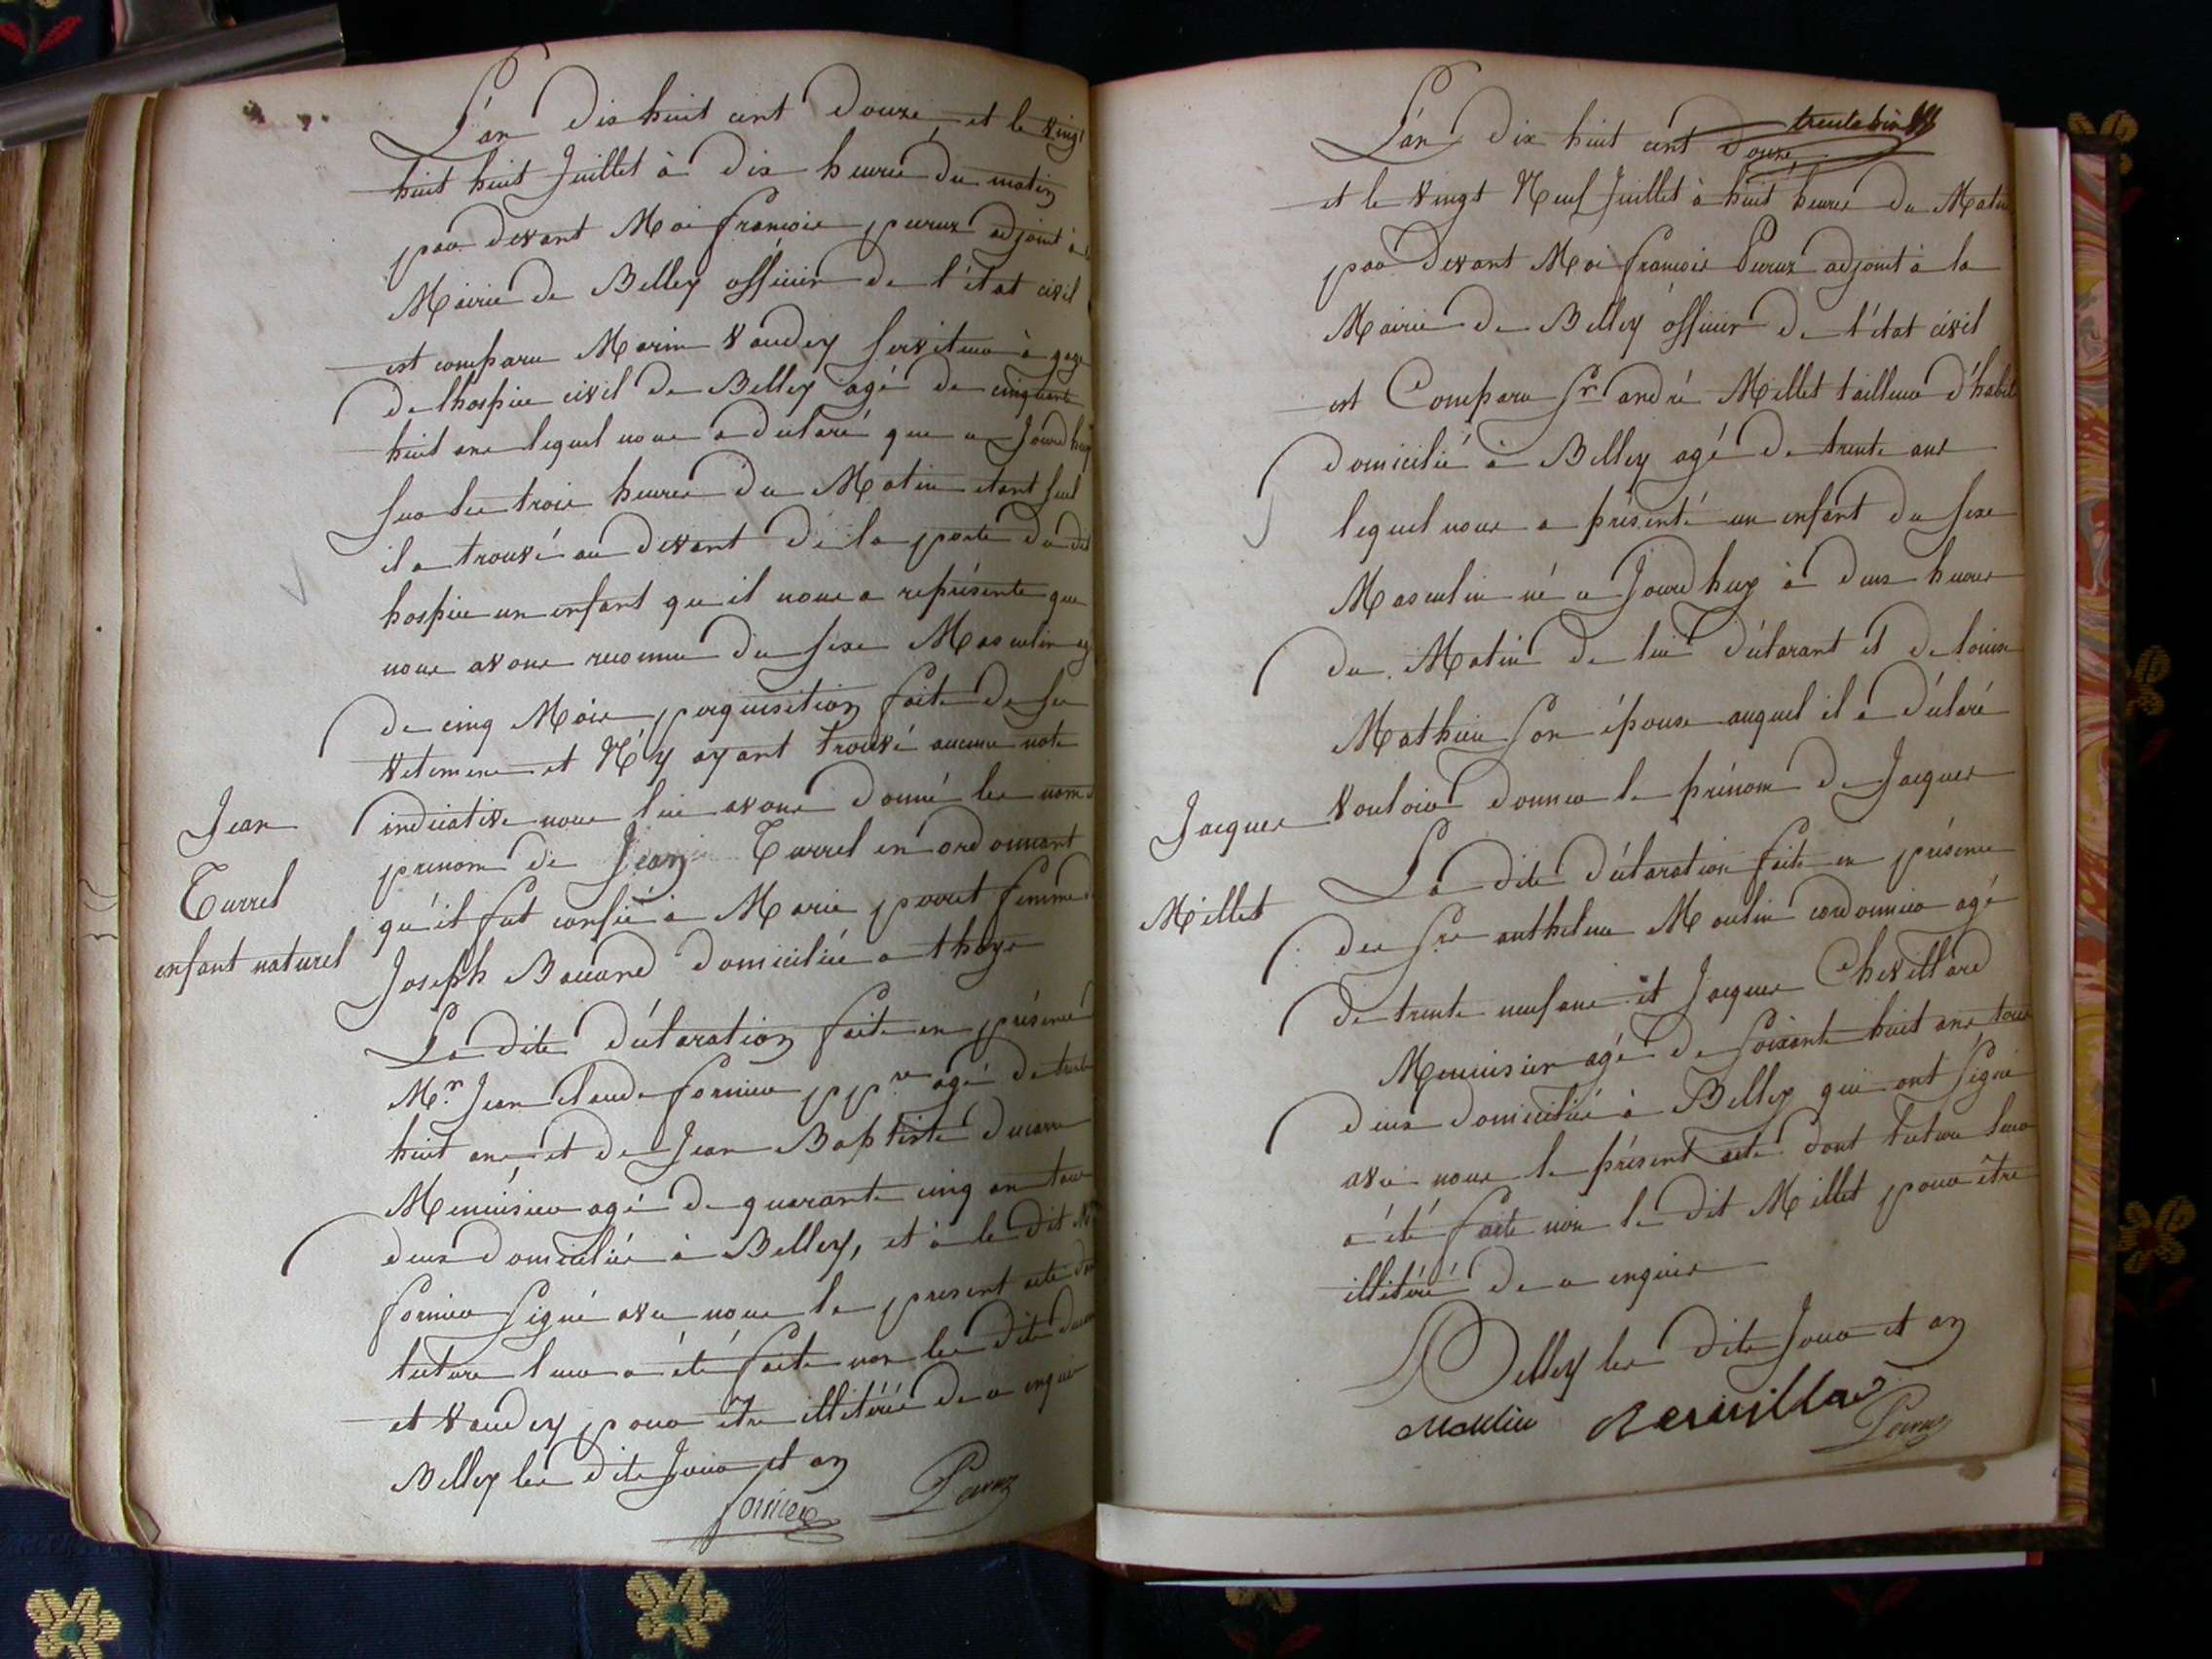 L'an dix huit cent douze et le vingt
huit huit Juillet à dix heures du matin
par devant Moi françois peruz adjoint à
Mairie de Belley officier de l'état civil
est comparu Marin Vaudey serviteur à gage
de lhospice civil de Belley agé de cinquante
huit ans lequel nous a declaré que ce Jourdhuy
sur les trois heures du Matin etant seul
il a trouvé au devant de la porte dudit
hospice un enfant qu'il nous a représenté que
nous avons reconnu du sexe Masculin agé
de cinq Mois perquisition faite de ses
vetemens et N'y ayant trouvé aucune note
indicative nous lui avons donné les noms
prenom de Jean Turrel en ordonnant
qu'il fut confié à Marie porret femme
Joseph domiciliée a
La dite déclaration faite en présence
Mr Jean claude fornier ppre agé de trente
huit ans et de Jean Baptiste
Menuisier agé de quarante cinq an tous
deux domiciliés à Belley, et à le dit Mr
fornier signé avec nous le present acte dont
lecture leur a été faite non les dits
et Vaudey pour être illitérés de ce enquis
Belley les dits Jour et an
fornier Peruz
Jean
Turrel
enfant naturel
L'an dix huit cent douze,
et le vingt Neuf Juillet à huit heures du Matin
par devant Moi françois Peruz adjoint à la
Mairie de Belley officier de l'état civil
est Comparu Sr andré Millet tailleur d'habits
domicilié à Belley agé de trente ans
lequel nous a présenté un enfant du sexe
Masculin né ce Jourdhuy à deux heures
du Matin de lui déclarant et de louise
Mathieu son épouse auquel il a déclaré
vouloir donner le prénom de Jacques
La dite déclaration faite en présence
des Srs anthelme Moulin cordonnier agé
de trente neuf ans et Jacques Chevillard
Menuisier agé de soixante huit ans tous
deux domiciliés à Belley qui ont signé
avec nous le présent acte dont lecture leur
a été faite non le dit Millet pour être
illitéré de ce enquis
Belley les dits Jour et an
Peruz
Jacques
Millet